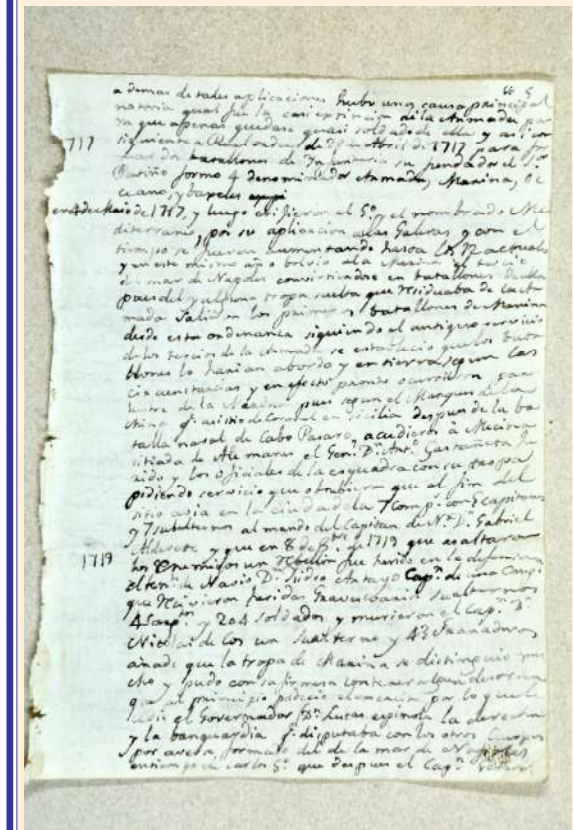 66 5
ademas de tales aplicaciones hubo una causa principal
notoria qual fue la casi extincion de la Armada, pa
ra que apenas quedase quasi soldado de ella y asi con
siguiente a Real orden de 28 de Abril de 1717 para for
1717
mar dos batallones de Infanteria su fundador el Sr.
Patiño formo 4 denominados Armada, Marina, Oc
ceano, y baxeles
en 4 de Maio de 1717, y luego erijieron el 5º el nombrado Me
diterraneo, por su aplicacion a las Galeras y con el
tiempo se fueron aumentando hasta los 12 actuales
y en este mismo año bolvio a la Marina el tercio
del mar de Napoles convirtiendose en batallones de
y alguna tropa suelta que residuaba de la Ar
mada Salieron los primeros batallones de Marina
desde esta ordenanza siguiendo el antiguo servicio
de los tercios de la Armada se establecio que los bata
llones lo harian abordo y en tierra segun las
circunstancias y en efecto pronto ocurrieron
lustre de la pues segun el Marques de la
Mina qe. asistio de Coronel en Sicilia despues de la ba
talla naval de Cabo Pasaro, acudieron à Mecina
sitiada de Alemanes el Genl. Dn. Antº. Gastañeta he
rido y los Oficiales de la esquadra con su tropa
pidiendo servicio que obtubieron que al fin del
sitio avia en la Ciudadela 7 Comps. con 5 capitanes
y 7 subalternos al mando del Capitan de Nº. Dn. Gabriel
Alderete y que en 8 de 8bre. de 1719 que asaltaron
1719
los Enemigos un rebellin fue herido en la defensa
el tente. de Navio Dn. Isidro Antayo Capn. de una Compª.
que recivieron heridas subalternos
4 sargtos. y 204 soldados y murieron el Capn. Dn.
Nicolas de los un subalterno y 43 Granaderos
añade que la tropa de Marina se distinguio mu
cho y pudo con su firmeza contener algun desorden
que al principio padecio por lo que le
cedio el Governador Dn. Lucas espinola la derecha
y la banguardia qe. disputaba con los otros Cuerpos
por averla formado del de la mar de Napoles
en tiempo de Carlos 5º. que despues el Capn. General